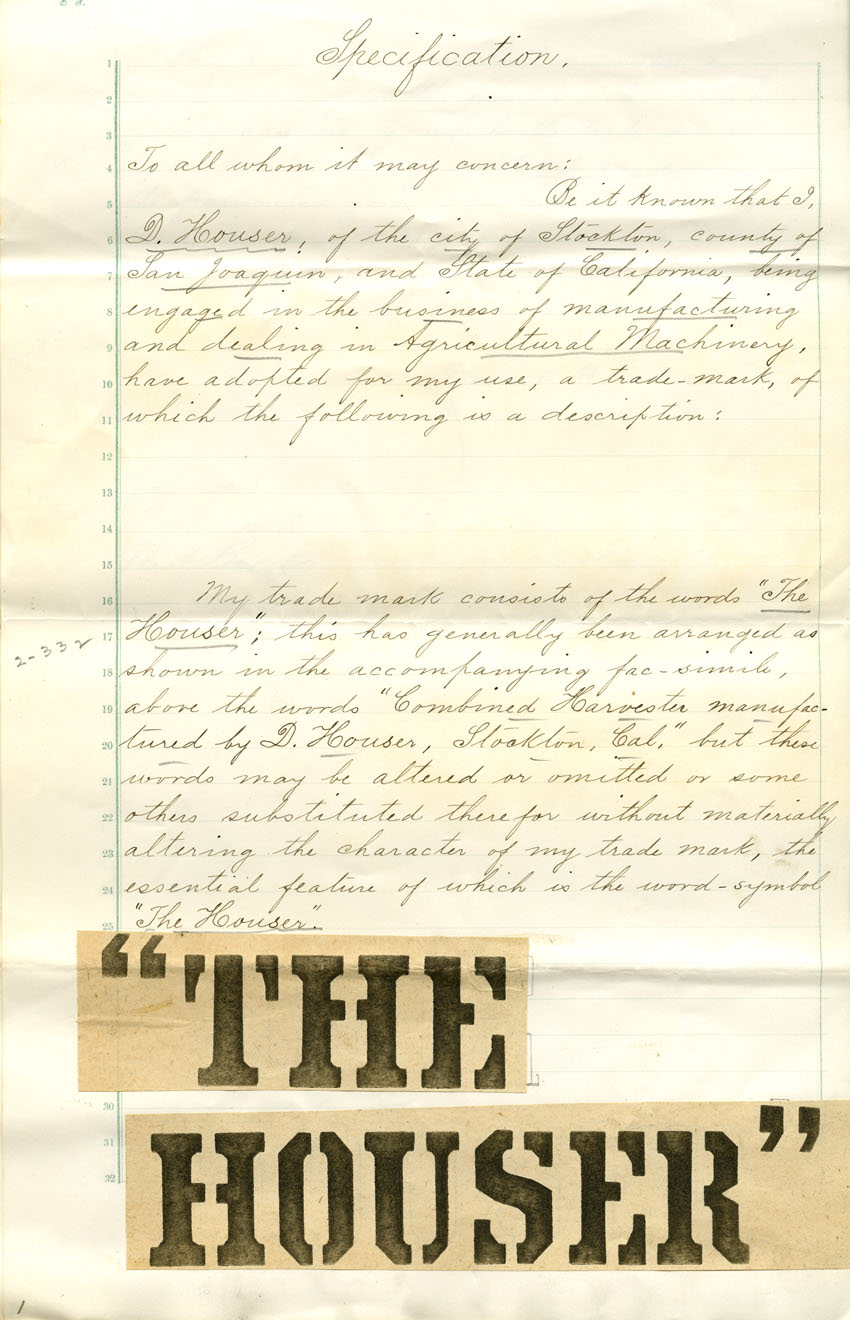 Specification.
1
2
3
4 To all whom it may concern:
5 Be it known that I,
6 D. Houser, of the city of Stockton, county of
7 San Joaquin, and State of California, being
8 engaged in the business of manufacturing
9 and dealing in Agricultural Machinery,
10 have adopted for my use, a trade-mark, of
11 which the following is a description:
12
13
14
15
16 My trade mark consists of the words "The
17 Houser"; this has generally been arranged as
2-332
18 shown in the accompanying fac-simile,
19 above the words "Combined Harvester manufac-
20 tured by D. Houser, Stockton, Cal," but these
21 words may be altered or omitted or some
22 others substituted therefor without materially
23 altering the character of my trade mark, the
24 essential feature of which is the word-symbol
25 "The Houser".
“THE
30
31
HOUSER”
32
1